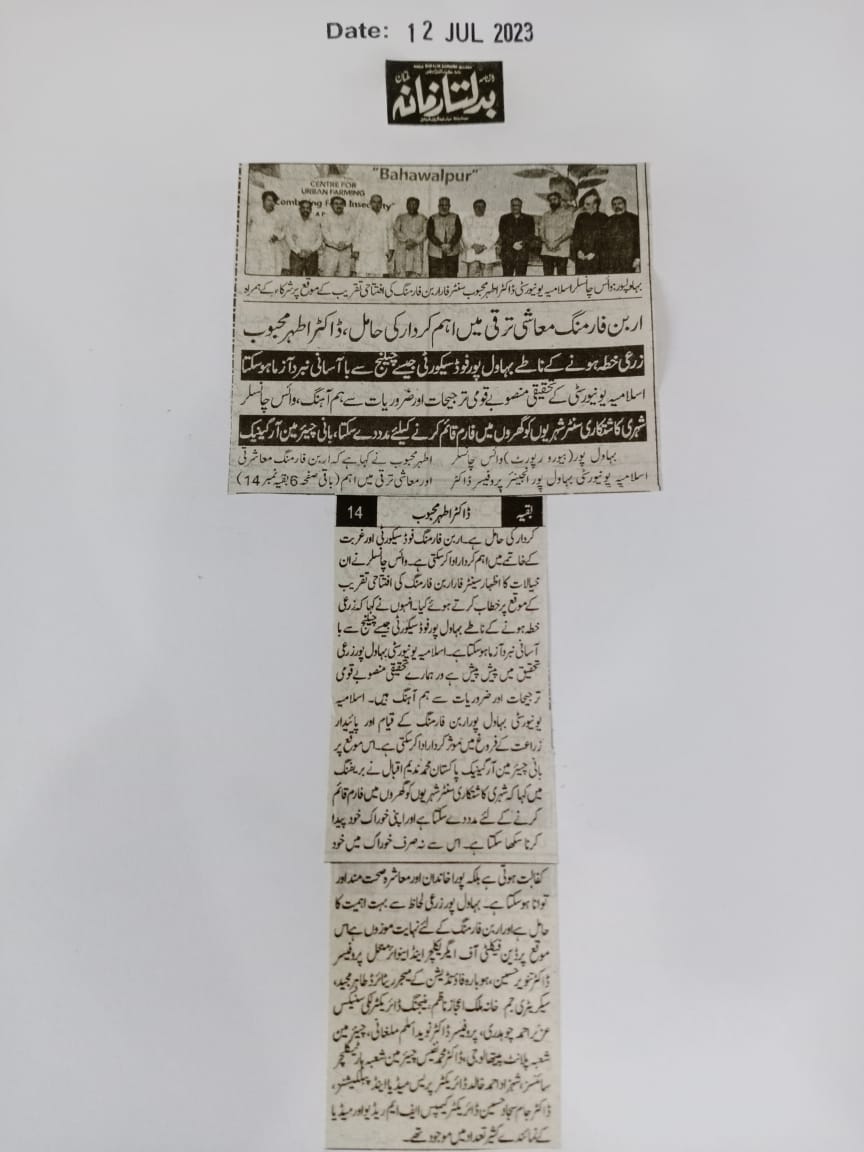 Date: 12 JUL 2023
روزنامہ بدلتا زمانہ ملتان
"Bahawalpur"
CENTRE FOR
URBAN FARMING
"Combating Food Insecurity"
بہاولپور: وائس چانسلر اسلامیہ یونیورسٹی ڈاکٹر اطہر محبوب سنٹر فار اربن فارمنگ کی افتتاحی تقریب کے موقع پر شرکاء کے ہمراہ
اربن فارمنگ معاشی ترقی میں اہم کردار کی حامل، ڈاکٹر اطہر محبوب
زرعی خطہ ہونے کے ناطے بہاول پور فوڈ سیکورٹی جیسے چیلنج سے با آسانی نبرد آزما ہوسکتا
اسلامیہ یونیورسٹی کے تحقیقی منصوبے قومی ترجیحات اور ضروریات سے ہم آہنگ، وائس چانسلر
شہری کاشتکاری سنٹر شہریوں کو گھروں میں فارم قائم کرنے کیلئے مدد دے سکتا، بانی چیئرمین آرگینیک
بہاول پور (بیورو رپورٹ) وائس چانسلر
اسلامیہ یونیورسٹی بہاول پور انجینئر پروفیسر ڈاکٹر
اطہر محبوب نے کہا ہے کہ اربن فارمنگ معاشرتی
اور معاشی ترقی میں اہم (باقی صفحہ 6 بقیہ نمبر 14)
بقیہ ڈاکٹر اطہر محبوب 14
کردار کی حامل ہے۔ اربن فارمنگ فوڈ سیکورٹی اور غربت
کے خاتمے میں اہم کردار ادا کر سکتی ہے۔ وائس چانسلر نے ان
خیالات کا اظہار سینٹر فار اربن فارمنگ کی افتتاحی تقریب
کے موقع پر خطاب کرتے ہوئے کیا۔ انہوں نے کہا کہ زرعی
خطہ ہونے کے ناطے بہاول پور فوڈ سیکورٹی جیسے چیلنج سے با
آسانی نبرد آزما ہو سکتا ہے۔ اسلامیہ یونیورسٹی بہاول پور زرعی
تحقیق میں پیش پیش ہے ور ہمارے تحقیقی منصوبے قومی
ترجیحات اور ضروریات سے ہم آہنگ ہیں۔ اسلامیہ
یونیورسٹی بہاول پور اربن فارمنگ کے قیام اور پائیدار
زراعت کے فروغ میں موثر کردار ادا کر سکتی ہے۔ اس موقع پر
بانی چیئرمین آرگینیک پاکستان محمد ندیم اقبال نے بریفنگ
میں کہا کہ شہری کاشتکاری سنٹر شہریوں کو گھروں میں فارم قائم
کرنے کے لئے مدد دے سکتا ہے اور اپنی خوراک خود پیدا
کرنا سکھا سکتا ہے۔ اس سے نہ صرف خوراک میں خود
کفالت ہوتی ہے بلکہ پورا خاندان اور معاشرہ صحت مند اور
توانا ہو سکتا ہے۔ بہاول پور زرعی لحاظ سے بہت اہمیت کا
حامل ہے اور اربن فارمنگ کے لئے نہایت موزوں ہے اس
موقع پر ڈین فیکلٹی آف ایگریکلچر اینڈ اینوائرمنٹل پروفیسر
ڈاکٹر تنویر حسین، ہوبارہ فاؤنڈیشن کے میجر ریٹائرڈ طاہر مجید،
سیکریٹری جم خانہ ملک اعجاز ناظم، منیجنگ ڈائریکٹر لکی سنیکس
عزیر احمد چوہدری، پروفیسر ڈاکٹر نوید اسلم ملغانی، چیئرمین
شعبہ پلانٹ پیتھالوجی، ڈاکٹر محمد نفیس چیئرمین شعبہ ہارٹیکلچر
سائنسز، شہزاد احمد خالد ڈائریکٹر پریس میڈیا اینڈ پبلکیشنز،
ڈاکٹر جام سجاد حسین ڈائریکٹر کیمپس ایف ایم ریڈیو اور میڈیا
کے نمائندے کثیر تعداد میں موجود تھے۔